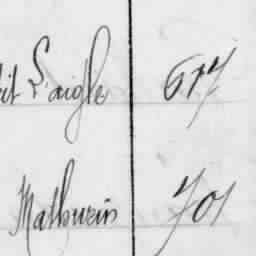 it L'aigle 617
Mathurin 701